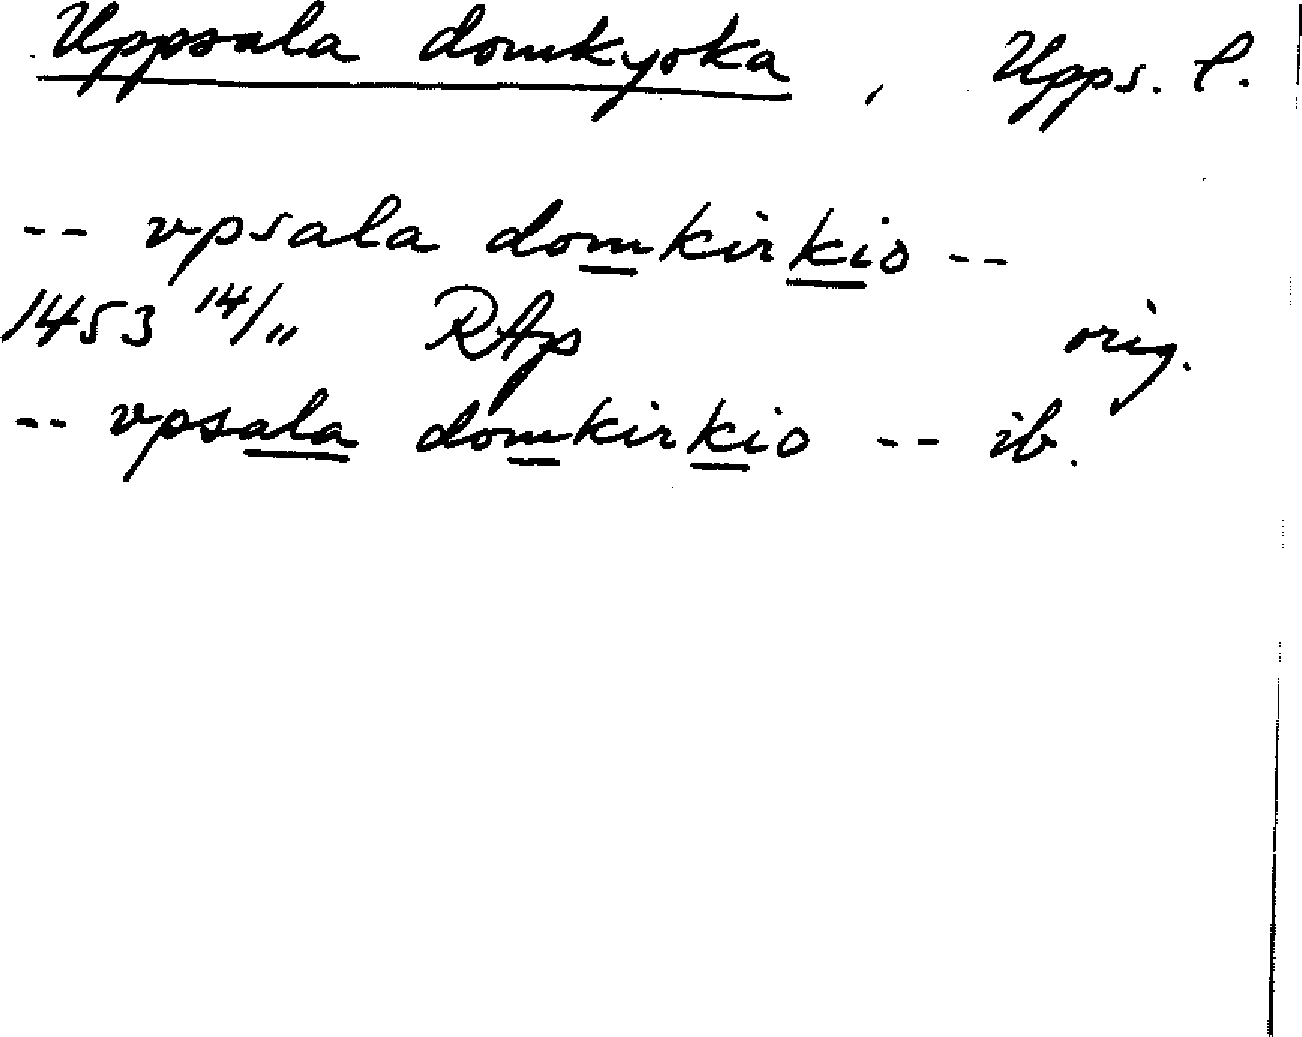 Uppsala domkyrka, Upps. l.
-- vpsala domkirkio --
1453 14/11 RAp orig.
-- vpsala domkirkio -- ib.